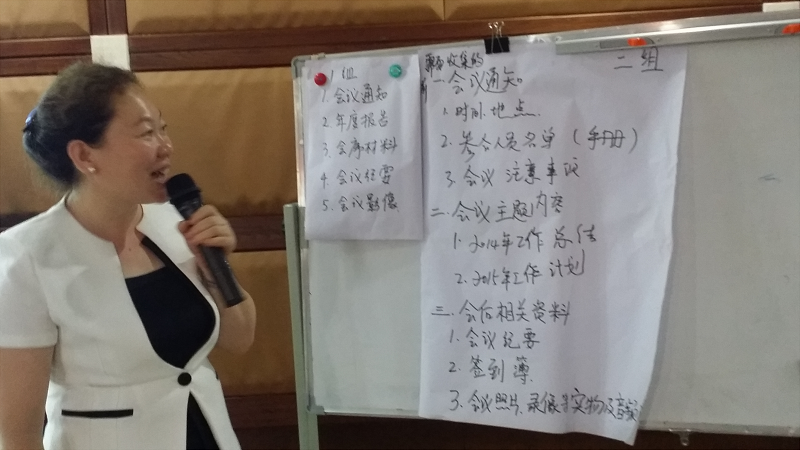 1组
1. 会议通知
2. 年度报告
3. 会序材料
4. 会议纪要
5. 会议影像
收集的
二组
一.会议通知
1. 时间.地点.
2. 参会人员名单(手册)
3. 会议 注意事项
二.会议主题内容
1. 2014年工作总结
2. 2015年工作计划
三.会后相关资料
1. 会议纪要
2. 签到簿.
3. 会议照片.录像
实物及音频